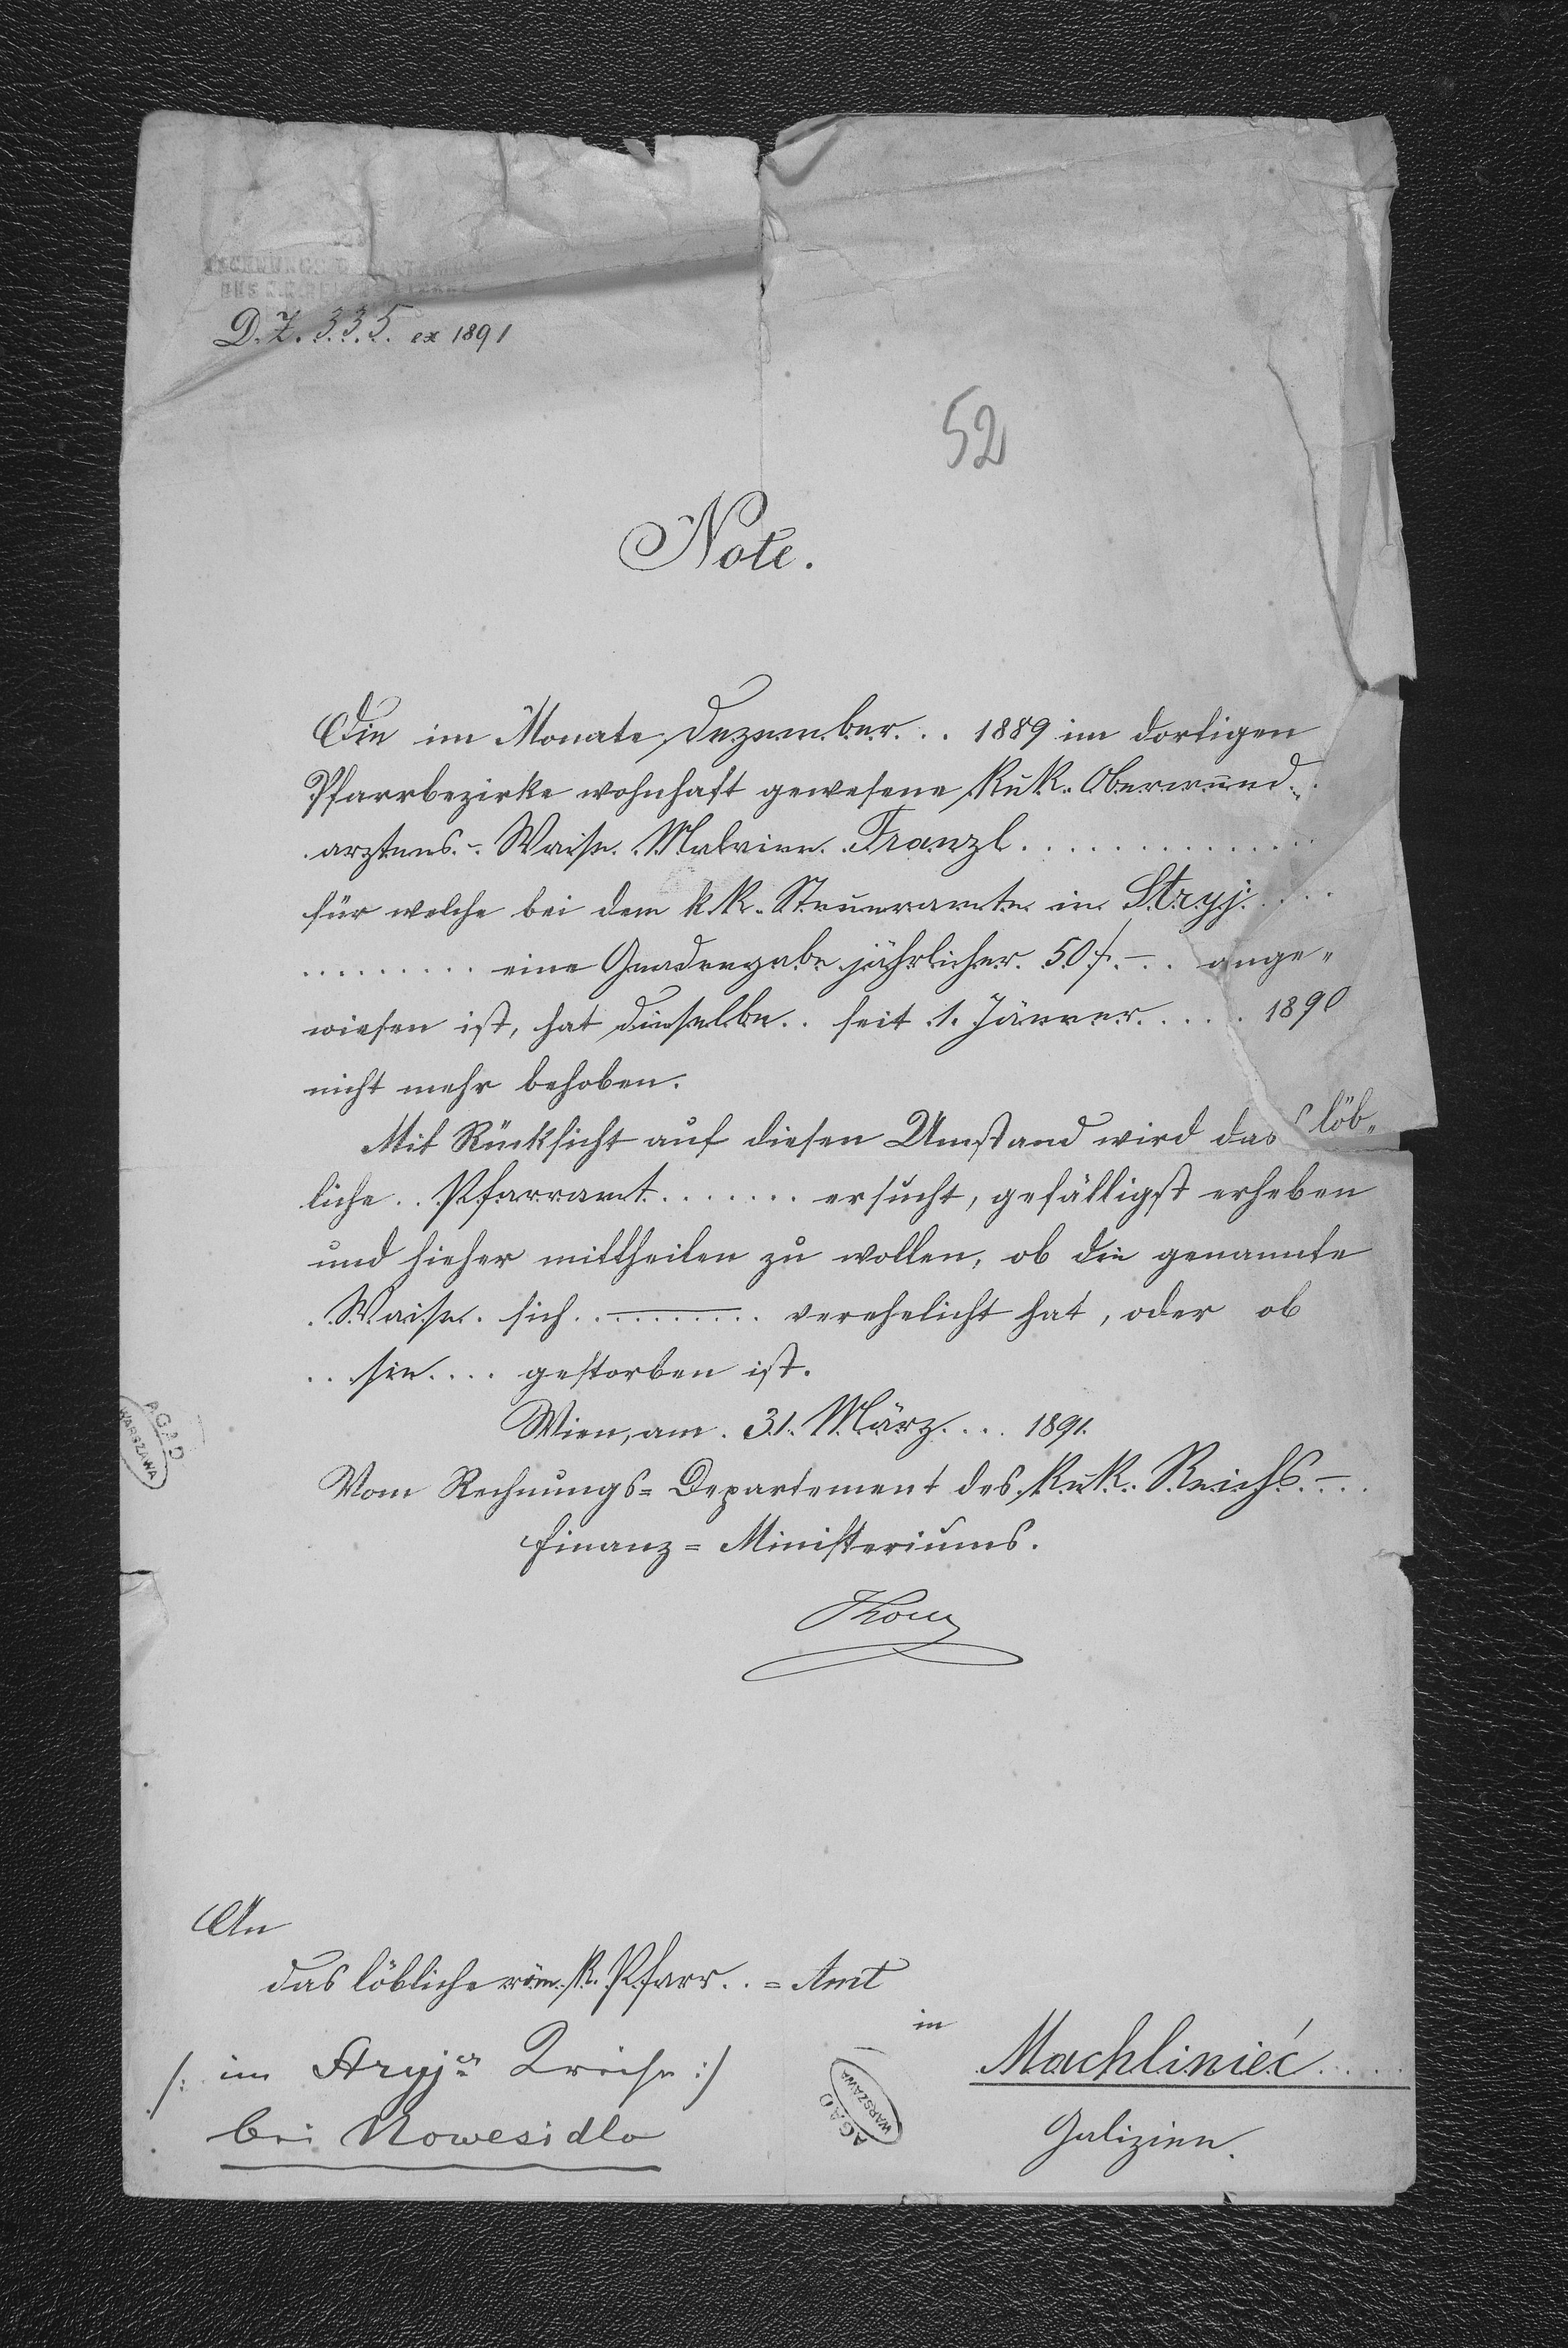 D.Z. 335. ex 1891
52
Note.
Die im Monate Dezember... 1889 im dortigen
Pfarrbezirke wohnhaft gewesene k.u.k. Oberwund-
arztens-Waise Malvine Franzl..............
für welche bei dem k.k. Steueramte in Stryj.....
......... eine Gnadengabe jährlicher 50 f.-.. ange„
wiesen ist, hat dieselbe.. seit 1. Jänner..... 1890
nicht mehr behoben.
Mit Rücksicht auf diesen Umstand wird das löb„
liche.. Pfarramt....... ersucht, gefälligst erheben
und hieher mittheilen zu wollen, ob die genannte
Waise. sich.......... verehelicht hat, oder ob
..sie.... gestorben ist.
Wien, am 31. März.... 1891.
Vom Rechnungs=Departement des k.u.k. Reichs-
finanz=Ministeriums.
An
das löbliche röm. k. Pfarr..=Amt
in
/: im Stryjer Kreise :/
Machliniéc.....
bei Nowesidlo
Galizien.
AGAD
WARSZAWA
AGAD
WARSZAWA